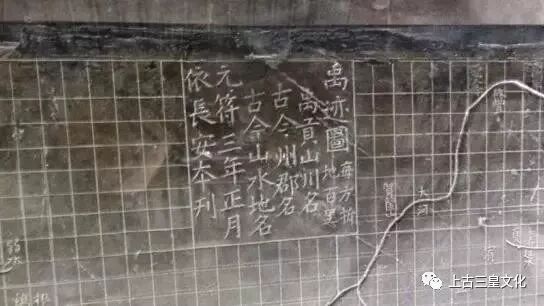 禹迹圖
每方折
地百里
禹貢山川名
古今州郡名
古今山水地名
元符三年正月
依長安本刊
大河
弱水
上古三皇文化